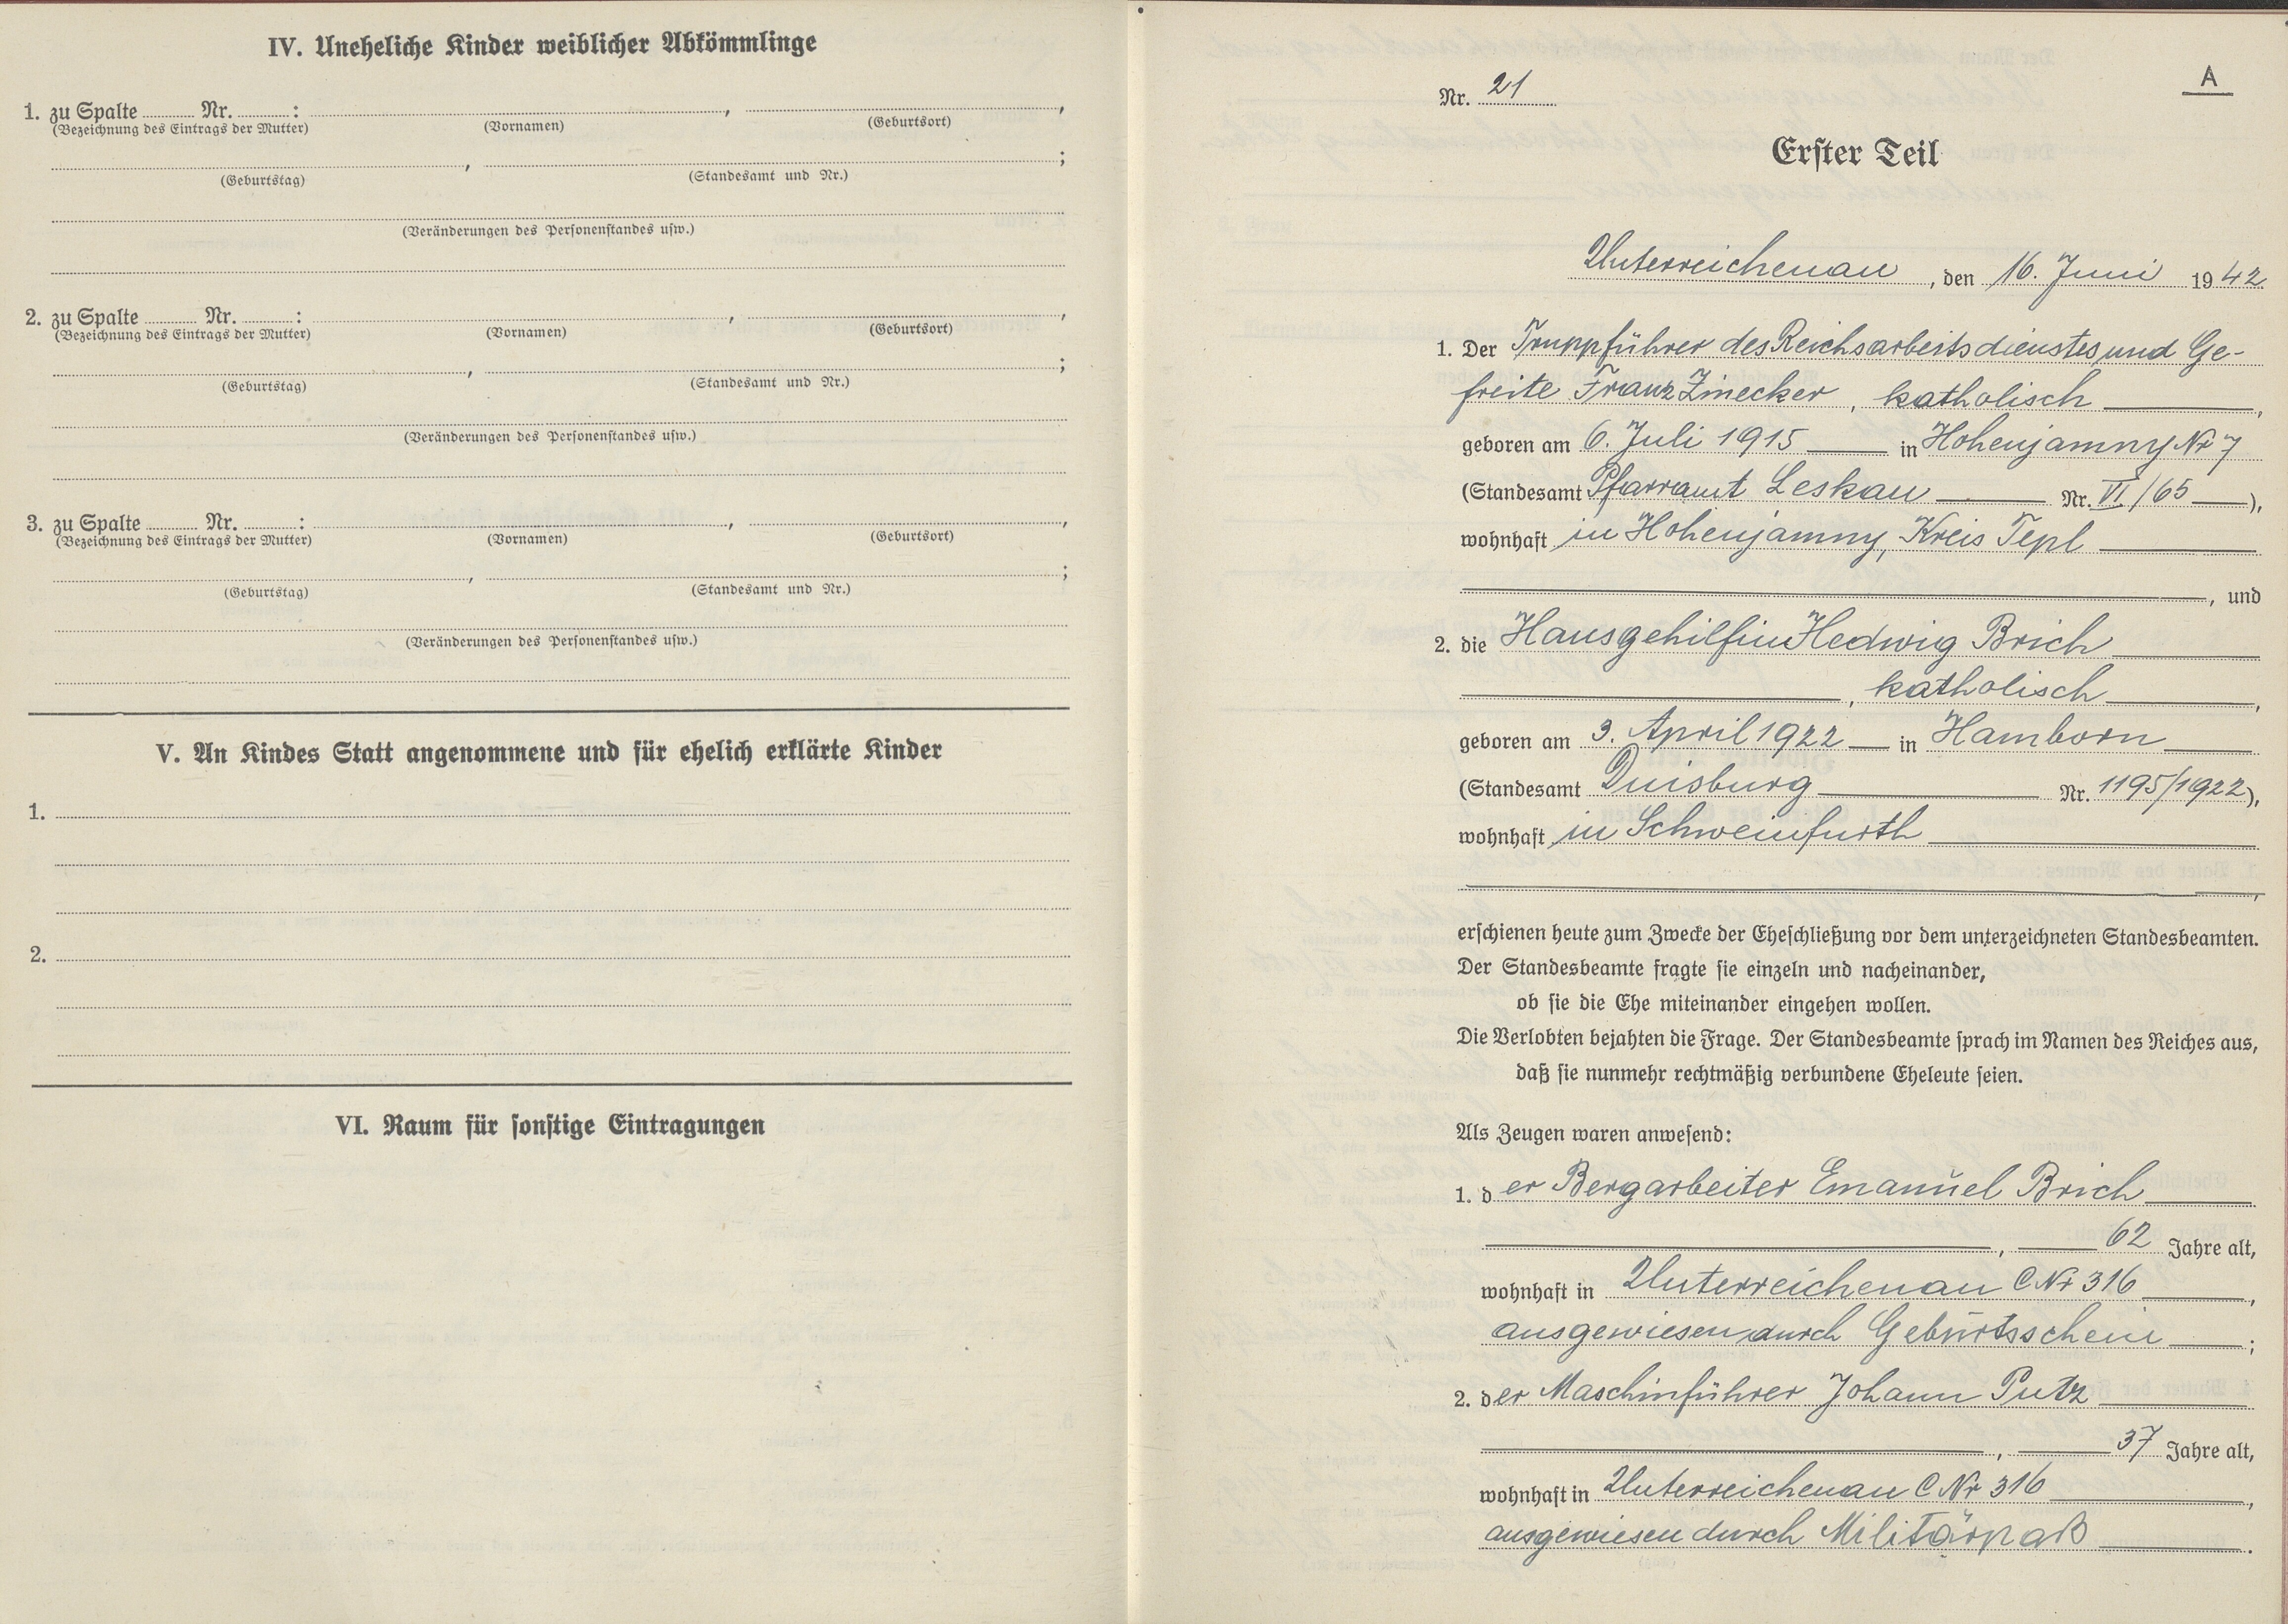 IV. Uneheliche Kinder weiblicher Abkömmlinge
1. zu Spalte ........ Nr. ........ : ........ , ........ ,
(Bezeichnung des Eintrags der Mutter) (Vornamen) (Geburtsort)
........ , ........ ;
(Geburtstag) (Standesamt und Nr.)
(Veränderungen des Personenstandes usw.)
2. zu Spalte ........ Nr. ........ : ........ , ........ ,
(Bezeichnung des Eintrags der Mutter) (Vornamen) (Geburtsort)
........ , ........ ;
(Geburtstag) (Standesamt und Nr.)
(Veränderungen des Personenstandes usw.)
3. zu Spalte ........ Nr. ........ : ........ , ........ ,
(Bezeichnung des Eintrags der Mutter) (Vornamen) (Geburtsort)
........ , ........ ;
(Geburtstag) (Standesamt und Nr.)
(Veränderungen des Personenstandes usw.)
V. An Kindes Statt angenommene und für ehelich erklärte Kinder
1.
2.
VI. Raum für sonstige Eintragungen
A
Nr. 21
Erster Teil
Unterreichenau, den 16. Juni 1942
1. Der Truppführer des Reichsarbeitsdienstes und Ge-
freite Franz Zinecker, katholisch,
geboren am 6. Juli 1915 in Hohenjamny Nr 7
(Standesamt Pfarramt Leskau Nr. VI./65),
wohnhaft in Hohenjamny, Kreis Tepl
, und
2. die Hausgehilfin Hedwig Brich
, katholisch,
geboren am 3. April 1922 in Hamborn
(Standesamt Duisburg Nr. 1195/1922),
wohnhaft in Schweinfurth
,
erschienen heute zum Zwecke der Eheschließung vor dem unterzeichneten Standesbeamten.
Der Standesbeamte fragte sie einzeln und nacheinander,
ob sie die Ehe miteinander eingehen wollen.
Die Verlobten bejahten die Frage. Der Standesbeamte sprach im Namen des Reiches aus,
daß sie nunmehr rechtmäßig verbundene Eheleute seien.
Als Zeugen waren anwesend:
1. der Bergarbeiter Emanuel Brich
, 62 Jahre alt,
wohnhaft in Unterreichenau C Nr 316,
ausgewiesen durch Geburtsschein;
2. der Maschinführer Johann Putz
, 37 Jahre alt,
wohnhaft in Unterreichenau C Nr 316,
ausgewiesen durch Militärpaß.